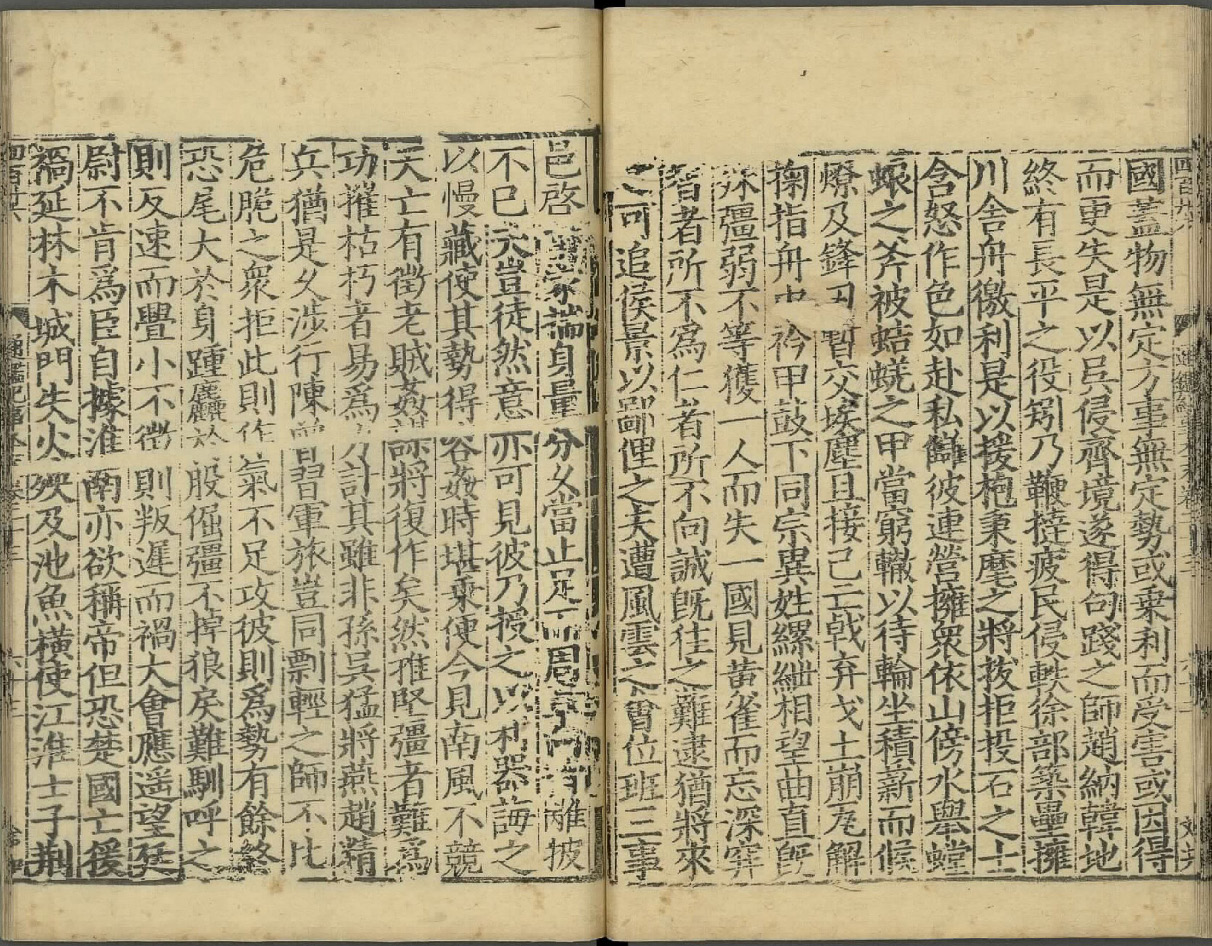 國蓋物無定方事無定勢或乗利而受害或因得
而更失是以吳侵齊境遂得句踐之師趙納韓地
終有長平之役矧乃鞭撻疲民侵軼徐部築壘擁
川舍舟徼利是以援枹秉麾之將拔拒投石之士
含怒作色如赴私讎彼連營擁衆依山傍水舉螳
蜋之斧被蛣蜣之甲當窮轍以待輪坐積薪而候
燎及鋒刃暫交埃塵且接已亡戟弃戈土崩瓦解
掬指舟中衿甲鼓下同宗異姓縲紲相望曲直旣
殊彊弱不等獲一人而失一國見黃雀而忘深穽
智者所不爲仁者所不向誠旣往之難逮猶將來
之可追侯景以鄙俚之夫遭風雲之會位班三事
邑啓萬家揣身量分久當止足而周章向背離披
不已夫豈徒然意亦可見彼乃授之以利器誨之
以慢藏使其勢得容姦時堪乗便今見南風不競
天亡有徵老賊姦謀將復作矣然推堅彊者難爲
功摧枯朽者易爲力計其雖非孫吳猛將燕趙精
兵猶是久涉行陳曾習軍旅豈同剽輕之師不比
危脆之衆拒此則作氣不足攻彼則爲勢有餘終
恐尾大於身踵麤於股倔彊不掉狼戾難馴呼之
則反速而舋小不徵則叛遲而禍大會應遥望廷
尉不肯爲臣自據淮南亦欲稱帝但恐楚國亡猨
禍延林木城門失火殃及池魚橫使江淮士子荆
通鑑紀事本末卷二十三